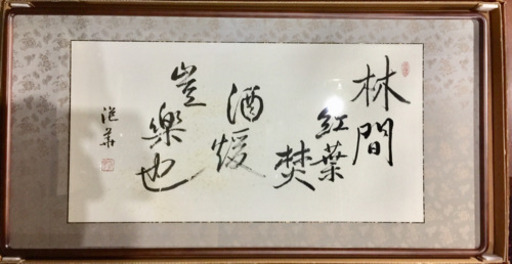 林間
紅葉
焚
酒煖
豈樂也